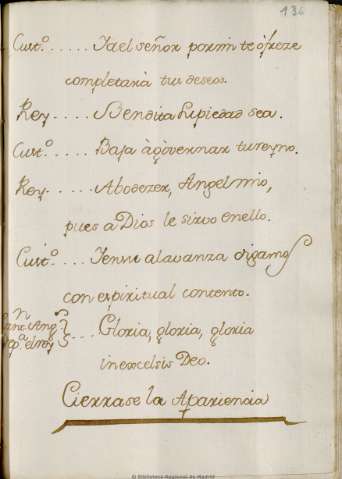 136
Cust.º ..... Ia el señor por mi te ofreze
completarà tus deseos.
Rey .... Bendita su piedad sea.
Cust.º .... Baja à governar tu reyno.
Rey .... A bodezer, Angel mio,
pues a Dios le sirvo en ello.
Cust.º .... Ien su alavanza digamos
con espiritual contento.
.... Gloria, gloria, gloria
in excelsis Deo.
Cierrase la Apariencia
© Biblioteca Nacional de Madrid